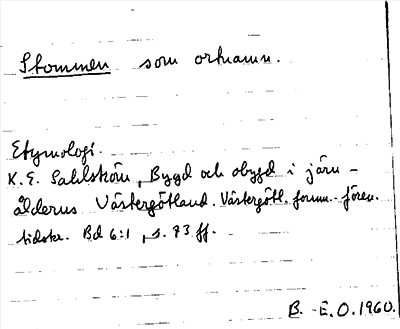 Stommen som ortnamn.
Etymologi.
K.E. Sahlström, Bygd och obygd i järn-
ålderns Västergötland. Västergötl. fornm.-fören.
tidskr. Bd 6:1, s. 73 ff.
B. E.O. 1960.